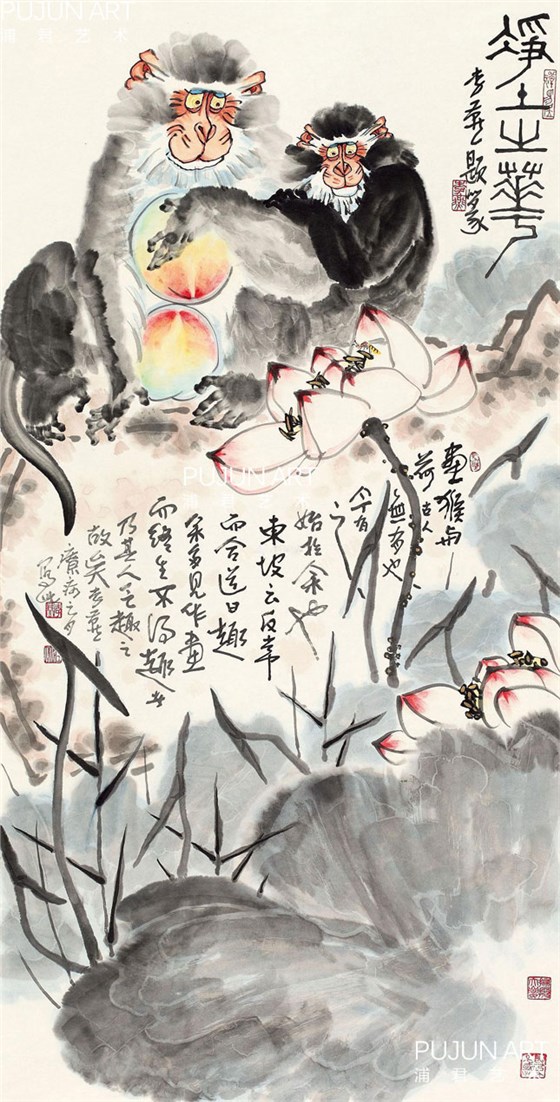 净土之华
李燕题篆
画猴与
荷古人
无有也
今有之
始於余也
东坡云反常
而合道曰趣
余多见作画
而终生不得趣者
乃其人无趣之
故矣李燕
写此
PUJUN ART
浦君艺术
PUJUN ART
浦君艺术
PUJUN ART
浦君艺术